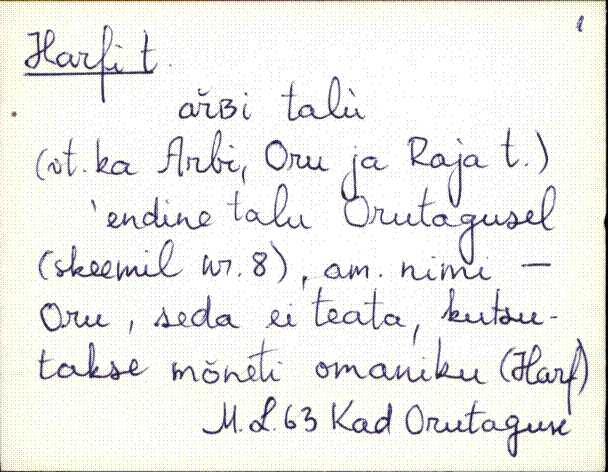 1
Harfi t.
ařʙi talù
(vt. ka Arbi, Oru ja Raja t.)
'endine talu Orutagusel
(skeemil nr. 8), am. nimi —
Oru, seda ei teata, kutsu-
takse mõneti omaniku (Harf)
M. L. 63 Kad Orutaguse